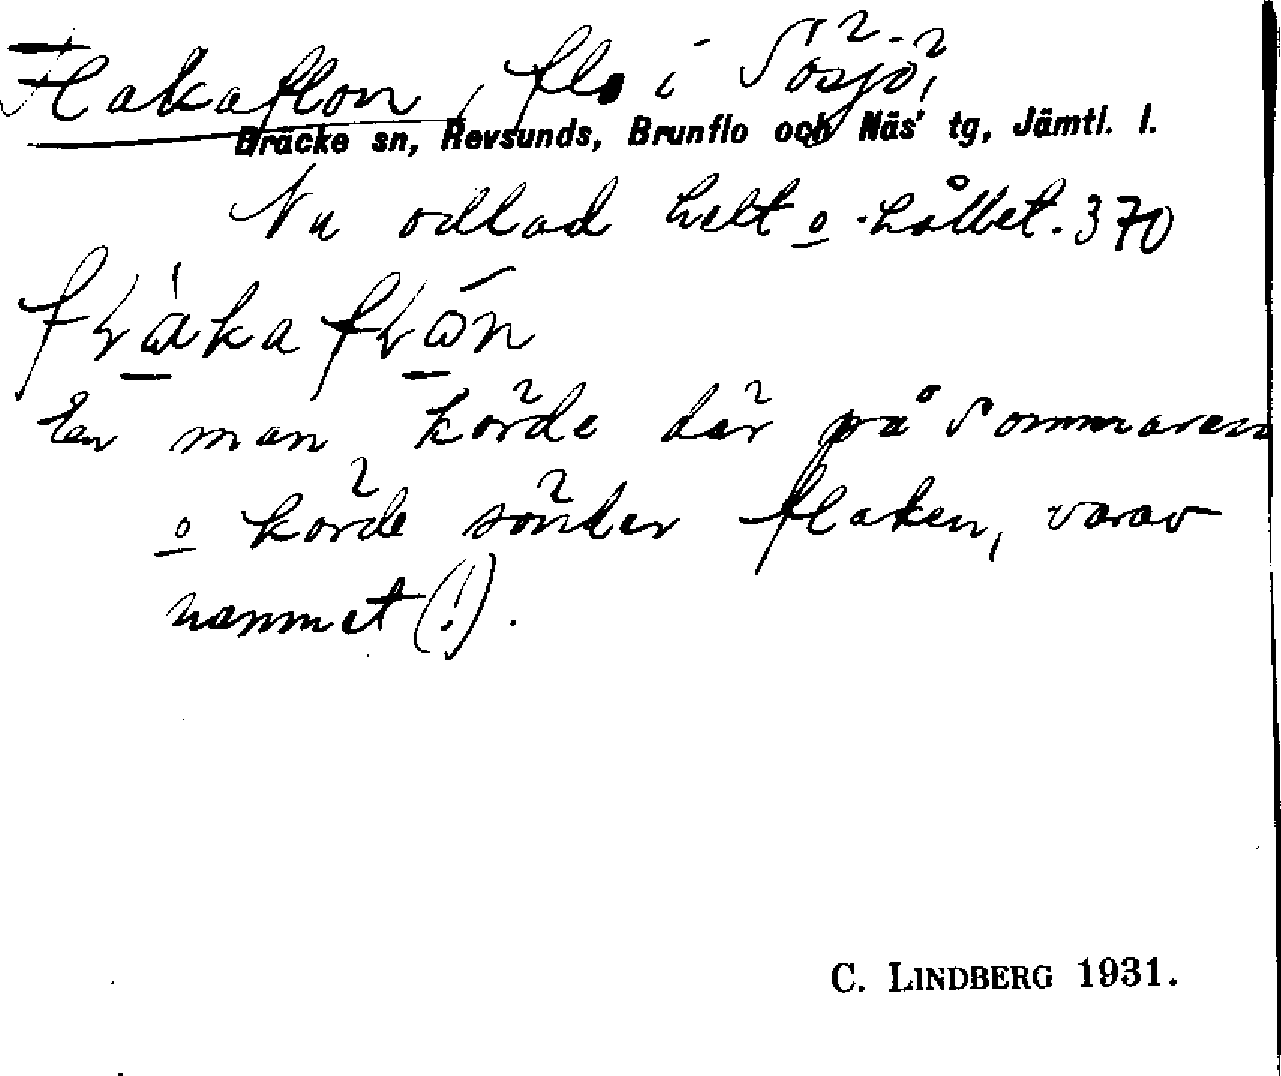 Flakaflon, flo i Sösjö,
Bräcke sn, Revsunds, Brunflo och Näs' tg, Jämtl. l.
Nu odlad helt o. hållet. 370
En man körde där på sommaren
o körde sönder flaken, varav
namnet (!).
C. LINDBERG 1931.